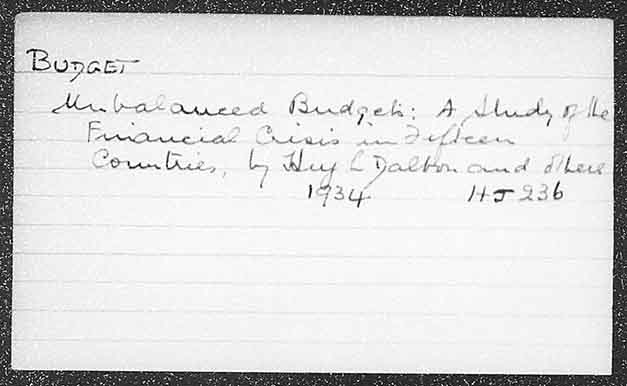 BUDGET
Unbalanced Budgets: A Study of the
Financial Crisis in Fifteen
Countries, by Hugh Dalton and others
1934 HJ 236